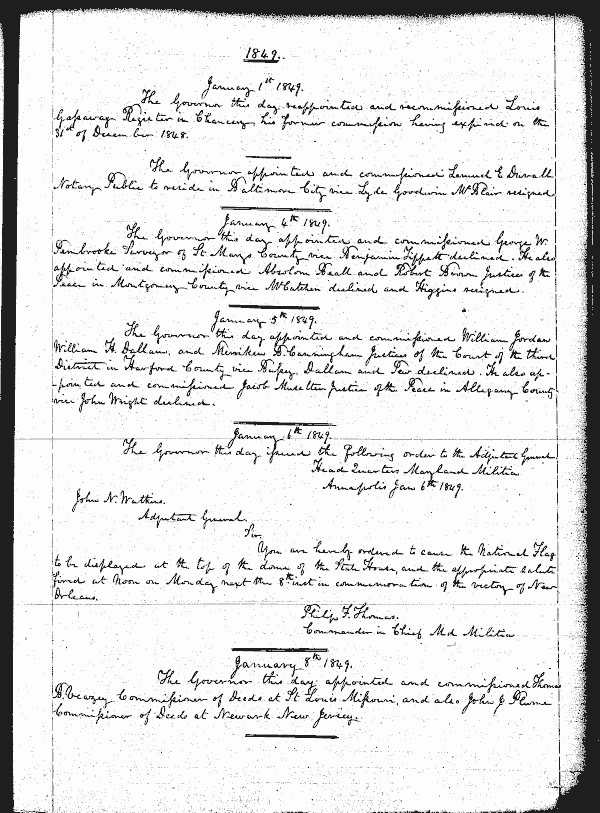 1849.
January 1st 1849.
The Governor this day reappointed and recommissioned Louis
Gassaway Register in Chancery, his former commission having expired on the
31st of December 1848.
The Governor appointed and commissioned Samuel E Duvall
Notary Public to reside in Baltimore City vice Lyde Goodwin McBlair resigned
January 4th 1849.
The Governor this day appointed and commissioned George W.
Pembrooke Surveyor of St Marys County vice Benjamin Tippett declined. He also
appointed and commissioned Absolom Beall and Robert Brown Justices of the
Peace in Montgomery County vice McCathen declined and Higgins resigned.
January 5th 1849.
The Governor this day appointed and commissioned William Jordan
William H. Dallam, and D. Cunningham Justices of the Court of the third
District in Harford County vice Dallam and declined. He also ap-
-pointed and commissioned Jacob Musetter Justice of the Peace in Allegany County
vice John Wright declined.
January 6th 1849.
The Governor this day issued the following order to the Adjutant General
Head Quarters Maryland Militia
Annapolis Jan 6th 1849.
John N. Watkins.
Adjutant General.
Sir
You are hereby ordered to cause the National Flag
to be displayed at the top of the dome of the State House, and the appropriate salute
fired at Noon on Monday next the 8th inst in commemoration of the victory of New
Orleans.
Philip F. Thomas.
Commander in Chief Md Militia
January 8th 1849.
The Governor this day appointed and commissioned Thomas
B. Veazey Commissioner of Deeds at St Louis Missouri, and also John J Plume
Commissioner of Deeds at Newark New Jersey.